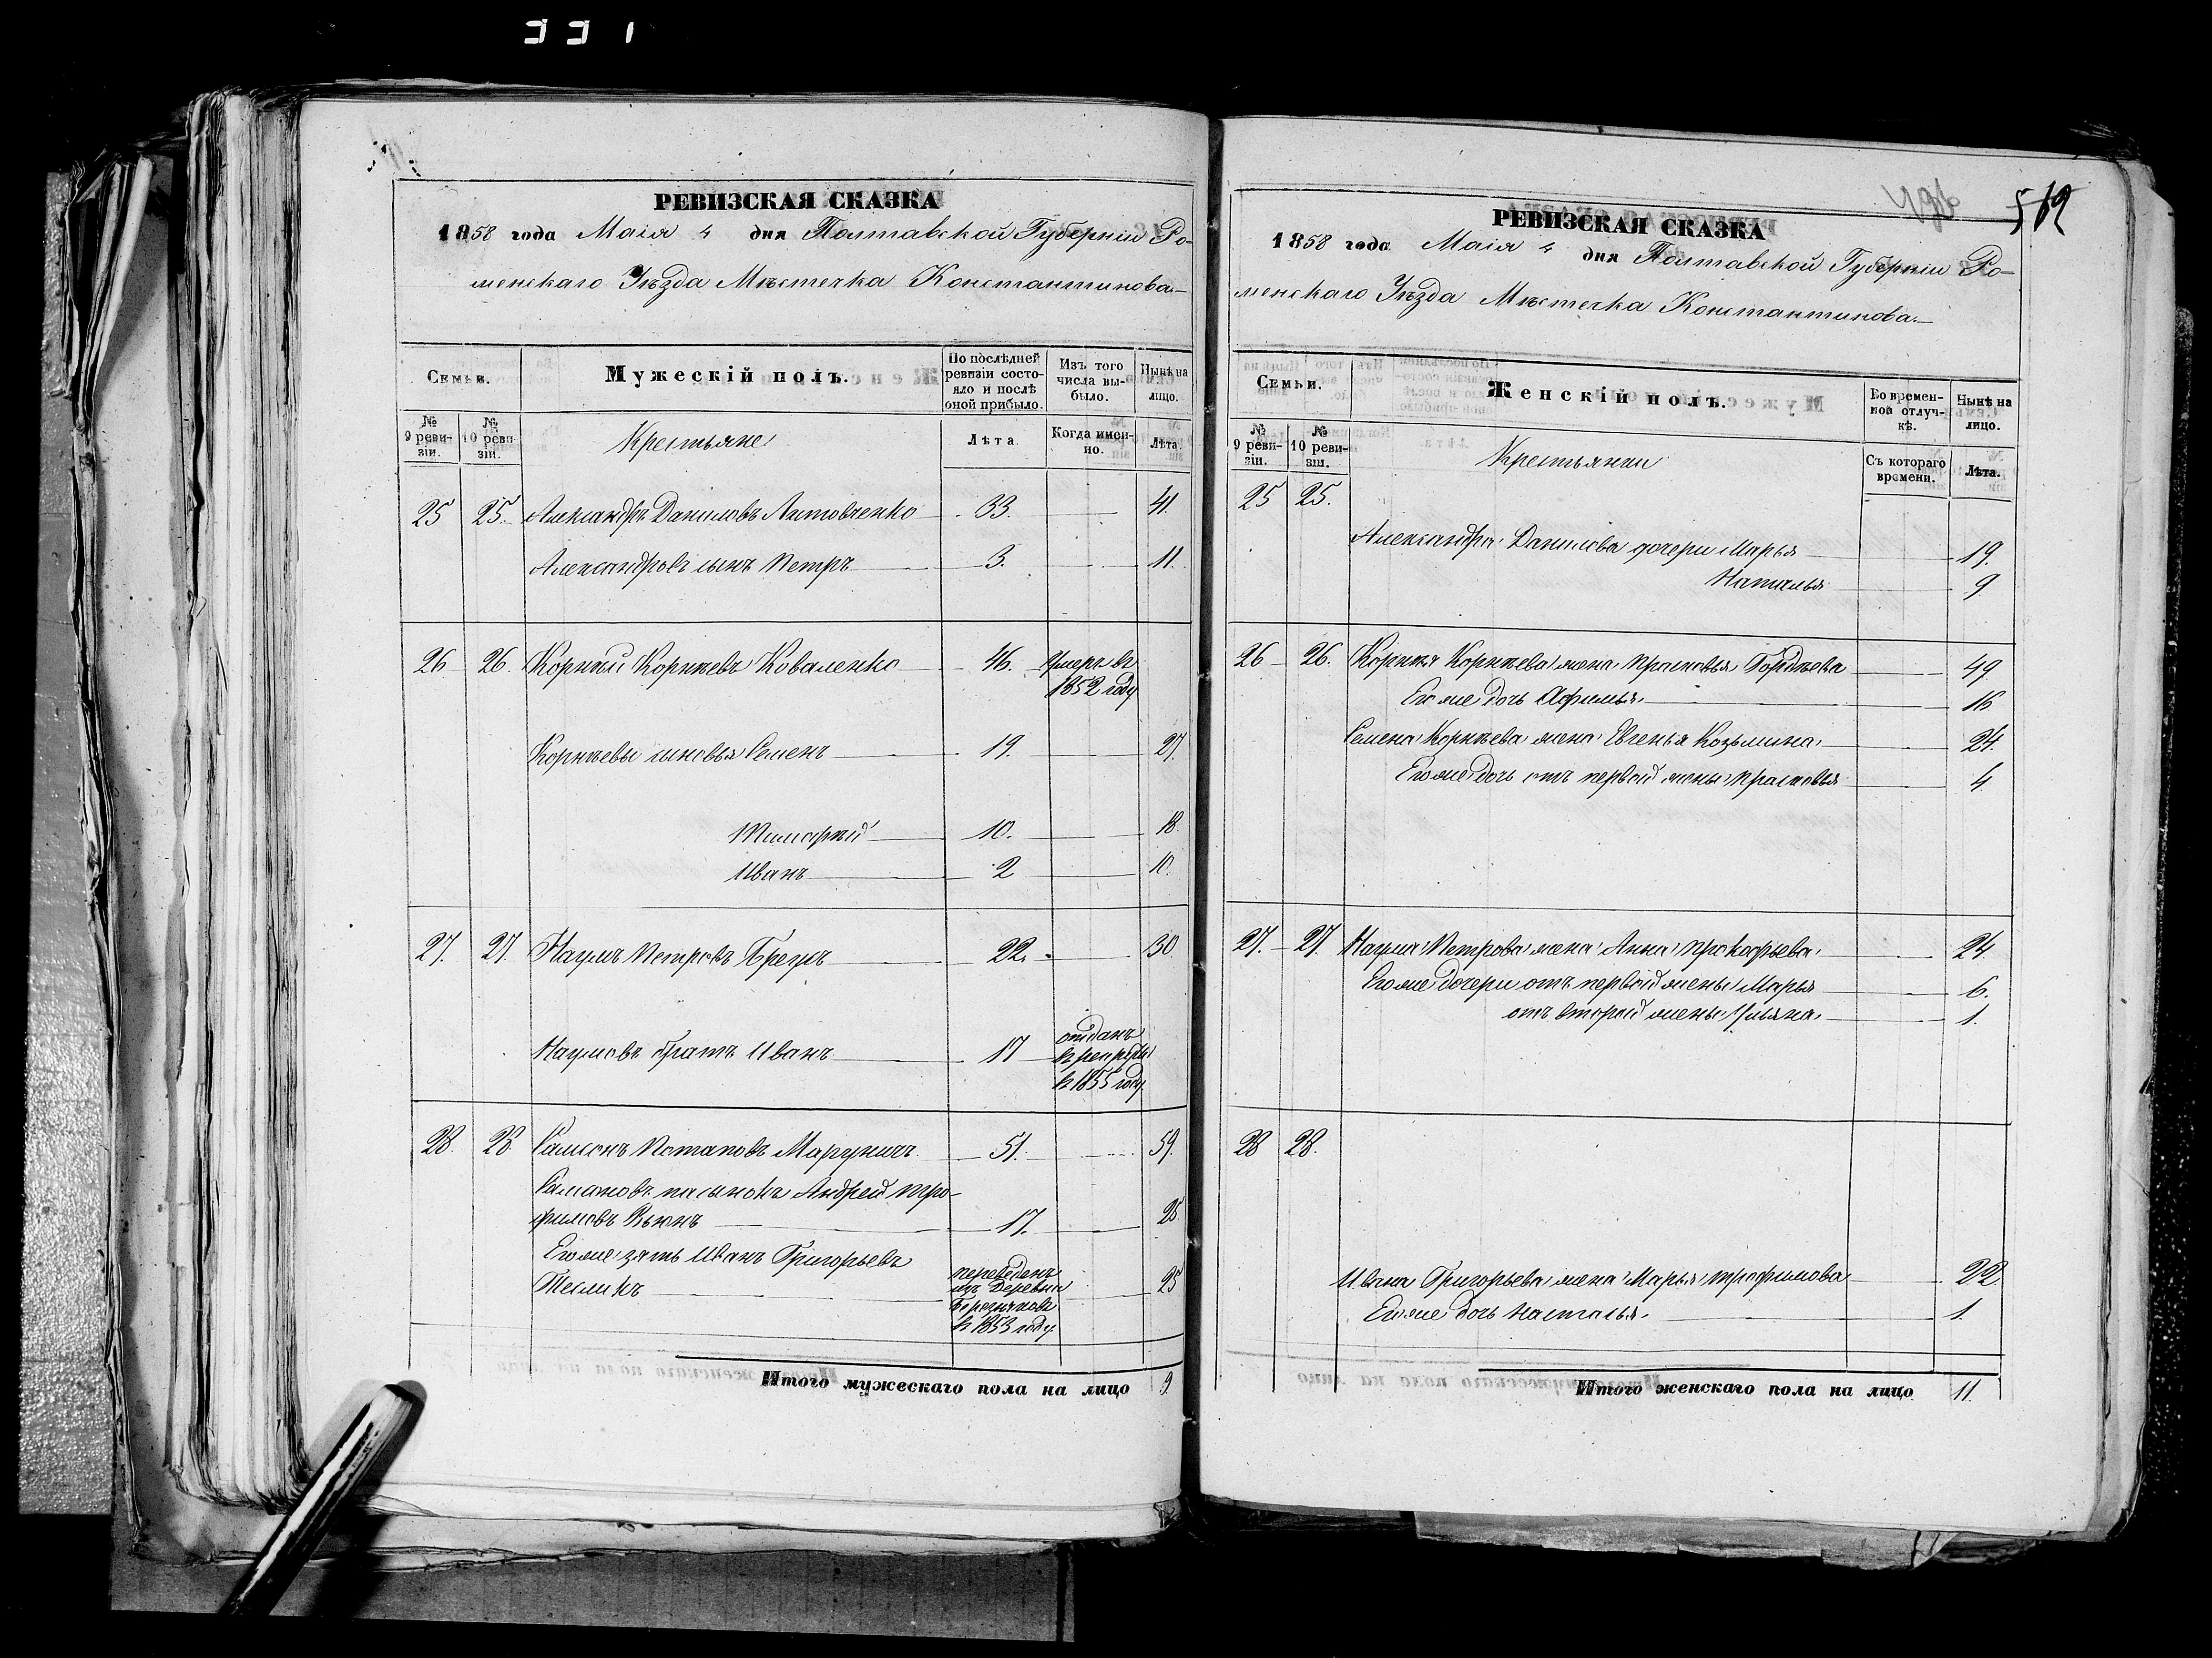 331
РЕВИЗСКАЯ СКАЗКА
1858 года Маія 4 дня Полтавской Губерніи Ро-
менскаго Уѣзда Мѣстечка Константинова
Семьи.
Мужескій полъ.
По послѣдней ревизіи состояло и послѣ оной прибыло.
Изъ того числа выбыло.
Нынѣ на лицо.
№ 9 ревизіи.
№ 10 ревизіи.
Крестьяне
Лѣта.
Когда именно.
Лѣта.
25 25. Александръ Даниловъ Литовченко 33. 41.
Александровъ сынъ Петръ 3. 11.
26 26. Корнѣй Корнѣевъ Коваленко 46. Умеръ въ
1852 году
Корнѣевы сыновья Семенъ 19. 27.
Тимофей 10. 18.
Иванъ 2 10.
27. 27. Наумъ Петровъ 22. 30
Наумовъ братъ Иванъ 17 отданъ
въ рекруты
въ 1855 году.
28. 28. Самсонъ Потаповъ 51. 59.
Самсоновъ пасынокъ Андрей Тро-
фимовъ Вьюнъ 17. 25
Его же зять Иванъ Григорьевъ
Теслик переведенъ
изъ Деревни
въ 1853 году. 25
Итого мужескаго пола на лицо 9
512
РЕВИЗСКАЯ СКАЗКА
1858 года Маія 4 дня Полтавской Губерніи Ро-
менскаго Уѣзда Мѣстечка Константинова
Семьи.
Женскій полъ.
Во временной отлучкѣ.
Нынѣ на лицо.
№ 9 ревизіи.
№ 10 ревизіи.
Крестьянки
Съ котораго времени.
Лѣта.
25 25.
Александра Данилова дочери Марья 19.
Наталья 9
26 26. Корнѣя Корнѣева жена Прасковья Гордѣева 49
Его же дочь Афимья 16
Семена Корнѣева жена Евгенья Козьмина 24.
Его же дочь отъ первой жены Прасковья 4.
27. 27. Наума Петрова жена Анна Прокофьева 24.
Его же дочери отъ первой жены Марья 6.
отъ второй жены Ульяна 1.
28 28.
Ивана Григорьева жена Марья Трофимова 22
Его же дочь Наталья 1.
Итого женскаго пола на лицо 11.